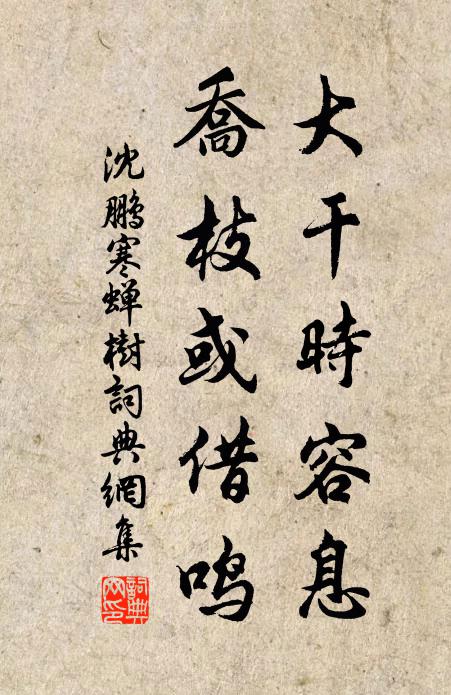 大干時容息
喬枝或借鳴
沈鹏寒蝉樹詞典網集
詞典网印